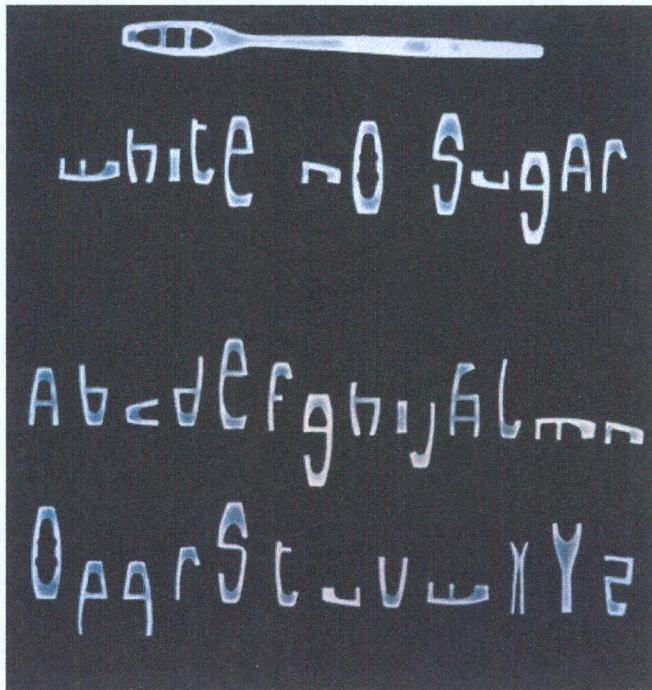 whitE nO SugAr
AbcdEfghijklmn
OpqrStuvwxYz